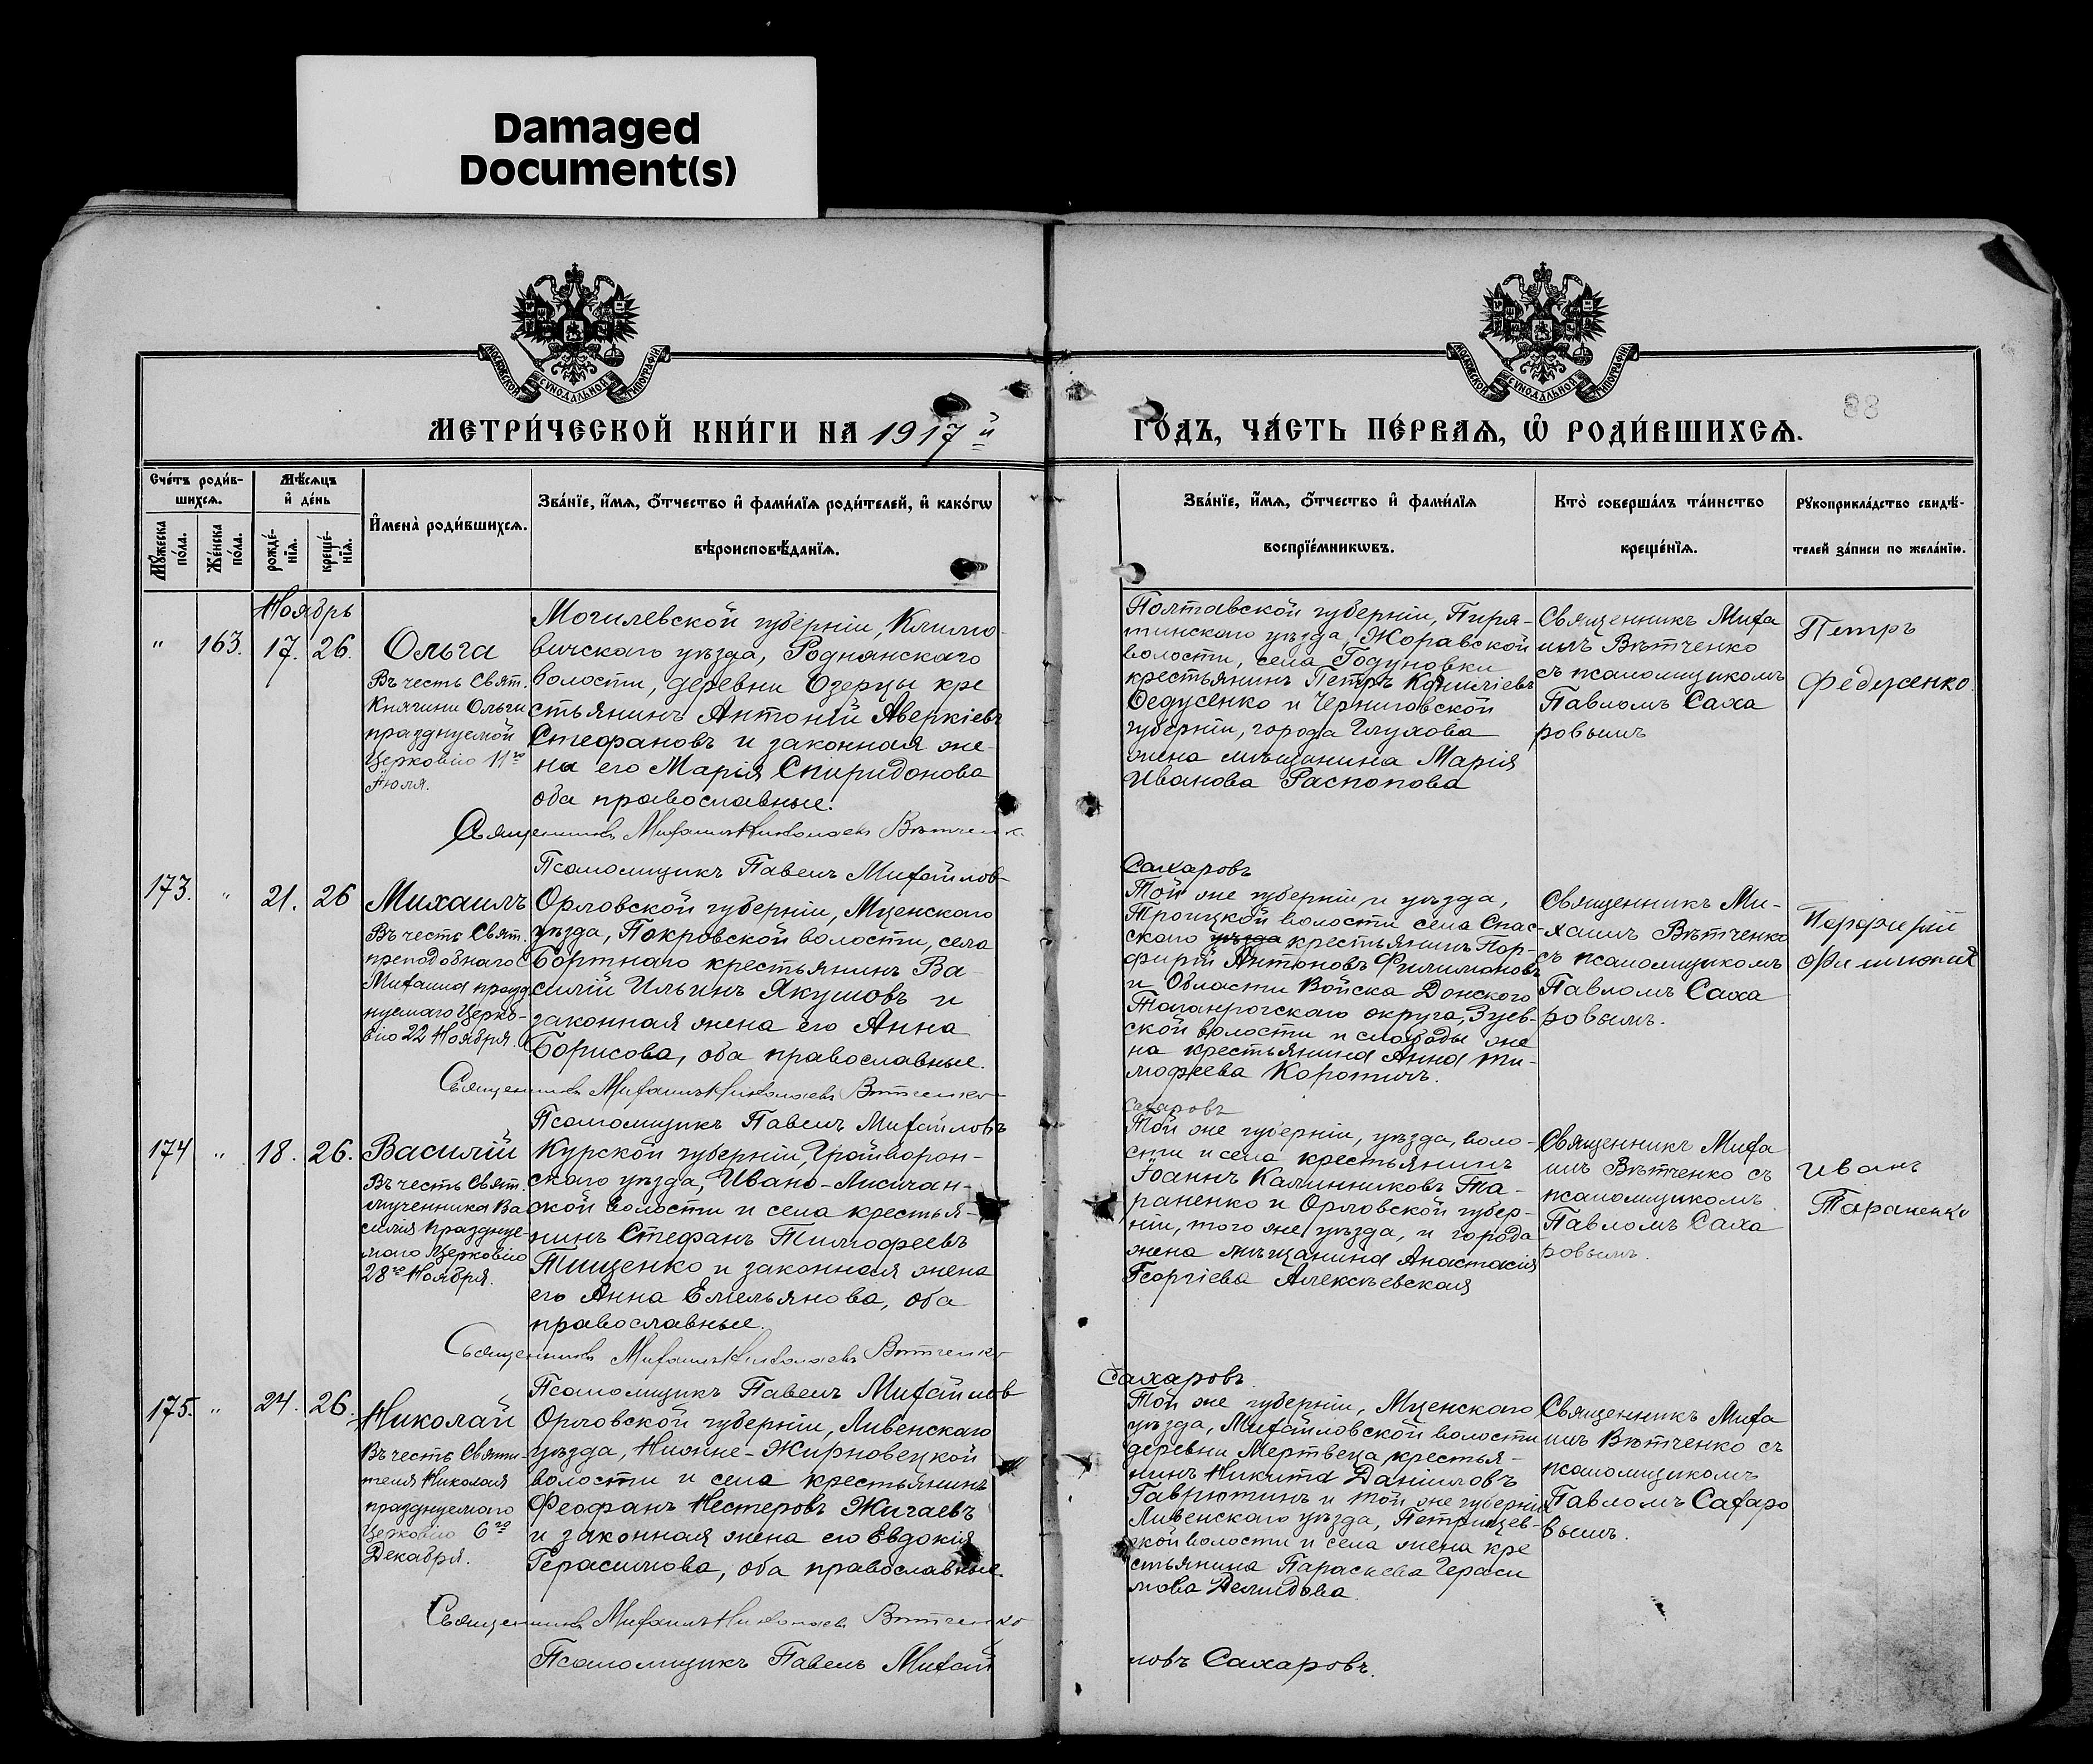 Damaged
Document(s)
МОСКОВСКОЙ СѴНОДАЛЬНОЙ ТИПОГРАФІИ.
МОСКОВСКОЙ СѴНОДАЛЬНОЙ ТИПОГРАФІИ.
88
МЕТРИ́ЧЕСКОЙ КНИ́ГИ НА 1917 й
ГО́ДЪ, ЧА́СТЬ ПЕ́РВАѦ, Ѡ҆ РОДИ́ВШИХСѦ.
Сче́тъ роди́в-
шихсѧ.
Мѹ́жеска по́ла.
Же́нска по́ла.
Мѣ́сѧцъ
и҆ де́нь
рожде́-
нїѧ.
креще́-
нїѧ.
И҆мена̀ роди́вшихсѧ.
Зва́нїе, и҆́мѧ, ѻ҆́тчество и҆ фами́лїѧ роди́телей, и҆ како́гѡ
вѣроисповѣ́данїѧ.
Зва́нїе, и҆́мѧ, ѻ҆́тчество и҆ фами́лїѧ
воспрїе́мникѡвъ.
Кто̀ соверша́лъ та́инство
креще́нїѧ.
Рѹкоприкла́дство свидѣ́-
телей за́писи по жела́нїю.
Ноябрь
" 163. 17. 26.
Ольга
Въ честь Свят.
Княгини Ольги
празднуемой
Церковію 11го
Іюля.
Могилевской губерніи, Климо-
вичскаго уѣзда, Роднянскаго
волости, деревни Озерцы кре
стьянинъ Антоній Аверкіевъ
Стефановъ и законная же-
на его Марія Спиридонова
оба православные.
Священникъ Михаилъ Николаевъ Вѣтченко
Псаломщикъ Павелъ Михайлов-
Полтавской губерніи, Пиря-
тинскаго уѣзда, Жоравской
волости, села Годуновки
крестьянинъ Петръ Корниліевъ
Федусенко и Черниговской
губерніи, города Глухова
жена мѣщанина Марія
Иванова Распопова
Сахаровъ
Священникъ Миха
илъ Вѣтченко
съ псаломщикомъ
Павломъ Саха
ровымъ
Петръ
Федусенко.
173. " 21. 26
Михаилъ
Въ честь Свят.
преподобнаго
Михаила празд
нуемаго Церко-
вію 22 Ноября.
Орловской губерніи, Мценскаго
уѣзда, Покровской волости, села
Бортнаго крестьянинъ Ва-
силій Ильинъ Якушовъ и
законная жена его Анна
Борисова, оба православные.
Священникъ Михаилъ Николаевъ Вѣтченко
Псаломщикъ Павелъ Михайловъ
Той же губерніи и уѣзда,
Троицкой волости села Спас-
скаго уѣзда крестьянинъ Пор-
фирій Антоновъ Филимоновъ
и Области Войска Донского
Таганрогскаго округа, Зуев-
ской волости и слободы же
на крестьянина Анна Ти-
мофеева Коротичъ.
Сахаровъ
Священникъ Ми-
хаилъ Вѣтченко
съ псаломщикомъ
Павломъ Саха
ровымъ.
Порфирий
174 " 18. 26.
Василій
Въ честь Свят.
мученника Ва
силія празднуе-
маго Церковію
28го Ноября.
Курской губерніи, Грайворон-
скаго уѣзда, Ивано-Лисичан-
ской волости и села крестья-
нинъ Стефанъ Тимофеевъ
Тищенко и законная жена
его Анна Емельянова, оба
православные.
Священникъ Михаилъ Николаевъ Вѣтченко
Псаломщикъ Павелъ Михайлов
Той же губерніи, уѣзда, воло-
сти и села крестьянинъ
Іоаннъ Калинниковъ Та-
раненко и Орловской губер-
ніи, того же уѣзда, и города
жена мѣщанина Анастасія
Георгіева Алексѣевская
Сахаровъ
Священникъ Миха
илъ Вѣтченко съ
псаломщикомъ
Павломъ Саха
ровымъ.
Иванъ
Тараненко
175. " 24. 26.
Николай
Въ честь Святи-
теля Николая
празднуемаго
Церковію 6го
Декабря.
Орловской губерніи, Ливенскаго
уѣзда, Нижне-Жирновецкой
волости и села крестьянинъ
Феофанъ Нестеровъ Жигаевъ
и законная жена его Евдокія
Герасимова, оба православные.
Священникъ Михаилъ Николаевъ Вѣтченко
Псаломщикъ Павелъ Михай
Той же губерніи, Мценскаго
уѣзда, Михайловской волости
деревни Мертвеца крестья-
нинъ Никита Даніиловъ
Гаврютинъ и той же губерніи
Ливенскаго уѣзда, Петрищев-
ской волости и села жена кре
стьянина Параскева Гераси
мова Демидова
ловъ Сахаровъ.
Священникъ Миха
илъ Вѣтченко съ
псаломщикомъ
Павломъ Сахаро
вымъ.